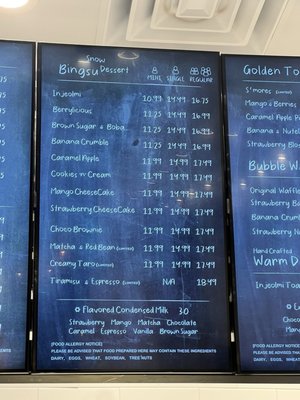 Snow
Bingsu Dessert
MINI SINGLE REGULAR
Injeolmi 10.99 14.49 16.75
Berrylicious 11.25 14.49 16.99
Brown Sugar & Boba 11.25 14.49 16.99
Banana Crumble 11.25 14.49 16.99
Caramel Apple 11.99 14.99 17.49
Cookies 'n' Cream 11.99 14.99 17.49
Mango CheeseCake 11.99 14.99 17.49
Strawberry CheeseCake 11.99 14.99 17.49
Choco Brownie 11.99 14.99 17.49
Matcha & Red Bean (Limited) 11.99 14.99 17.49
Creamy Taro (Limited) 11.99 14.99 17.49
Tiramisu & Espresso (Limited) N/A 18.49
Flavored Condensed Milk 30
Strawberry Mango Matcha Chocolate
Caramel Espresso Vanilla Brown Sugar
[FOOD ALLERGY NOTICE]
PLEASE BE ADVISED THAT FOOD PREPARED HERE MAY CONTAIN THESE INGREDIENTS
DAIRY, EGGS, WHEAT, SOYBEAN, TREE NUTS
Golden To
S'mores
Mango & Berries
Caramel Apple
Banana & Nute
Strawberry Blo
Bubble Wa
Original Waffle
Strawberry
Banana Crumb
Strawberry
Hand Crafted
Warm D
Injeolmi Toa
Choco
[FOOD ALLERGY NOTICE]
PLEASE BE ADVISED
DAIRY, EGGS,